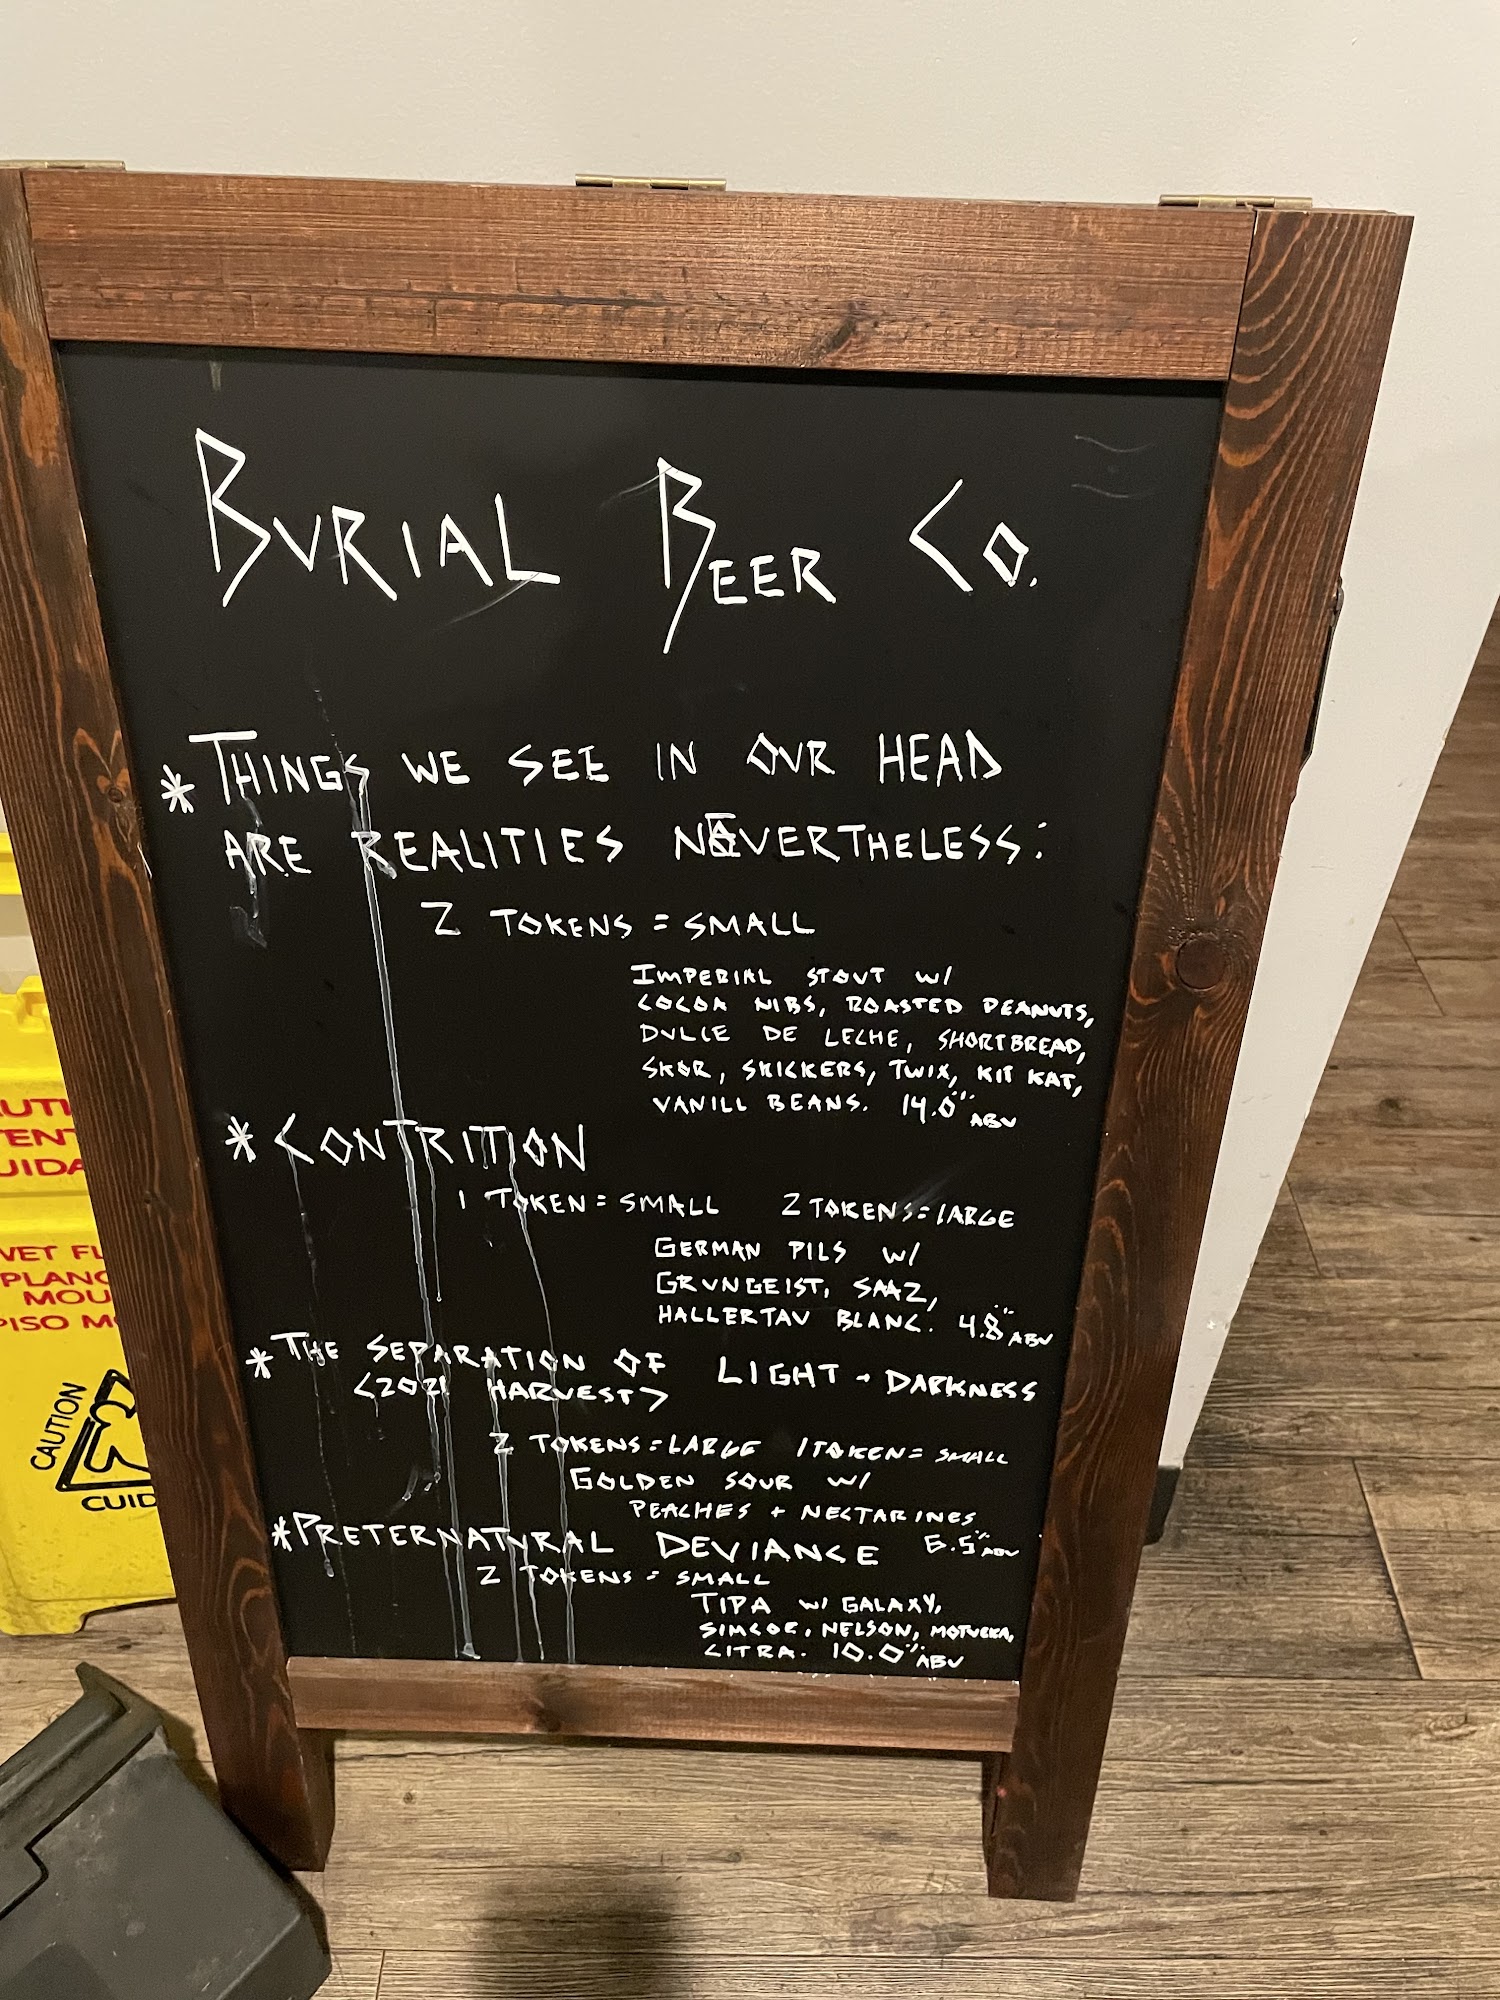 BURIAL BEER CO.
* THINGS WE SEE IN OUR HEAD
ARE REALITIES NEVERTHELESS:
2 TOKENS = SMALL
IMPERIAL STOUT W/
COCOA NIBS, ROASTED PEANUTS,
DULCE DE LECHE, SHORTBREAD,
SKOR, SNICKERS, TWIX, KIT KAT,
VANILL BEANS. 14.0% ABV
* CONTRITION
1 TOKEN = SMALL 2 TOKENS = LARGE
GERMAN PILS W/
GRUNGEIST, SAAZ,
HALLERTAU BLANC. 4.8% ABV
* THE SEPARATION OF LIGHT + DARKNESS
<2021 HARVEST>
2 TOKENS = LARGE 1 TOKEN = SMALL
GOLDEN SOUR W/
PEACHES + NECTARINES
6.5% ABV
* PRETERNATURAL DEVIANCE
2 TOKENS = SMALL
TIPA W/ GALAXY,
SIMCOE, NELSON, MOTUEKA,
CITRA. 10.0% ABV
CAUTION
CUID